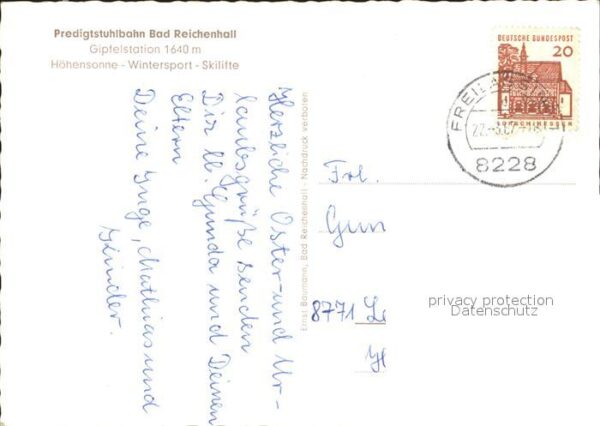 Predigtstuhlbahn Bad Reichenhall
Gipfelstation 1640 m
Höhensonne - Wintersport - Skilifte
DEUTSCHE BUNDESPOST
20
LORSCH/HESSEN
8228
Herzliche Oster- und Ur-
laubsgrüße senden
Dir lb. Gunda und Deinen
Eltern
Deine Inge, Mathias und
Günder.
Ernst Baumann, Bad Reichenhall - Nachdruck verboten
Frl.
Gun
8771
privacy protection
Datenschutz